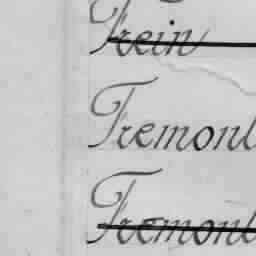 Frein
Fremont
Fremont